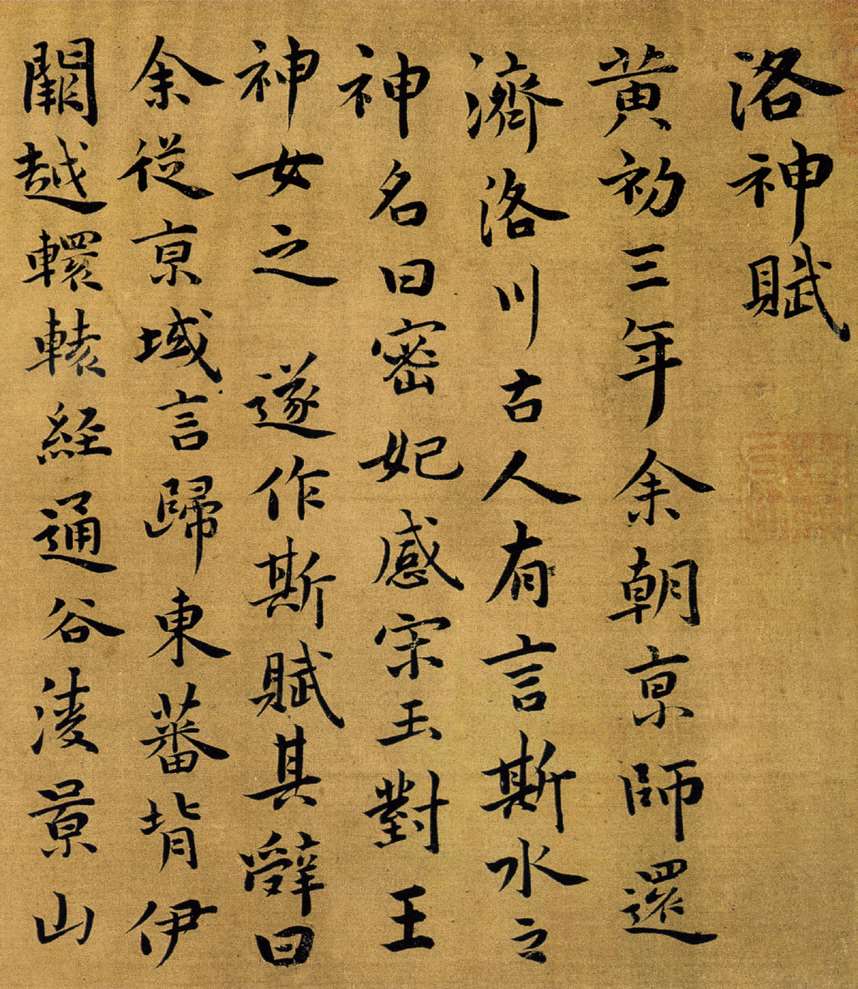 洛神賦
黄初三年余朝京師還
濟洛川古人有言斯水之
神名曰密妃感宋玉對王
神女之 遂作斯賦其辭曰
余從京域言歸東蕃背伊
闕越轘轅經通谷淩景山